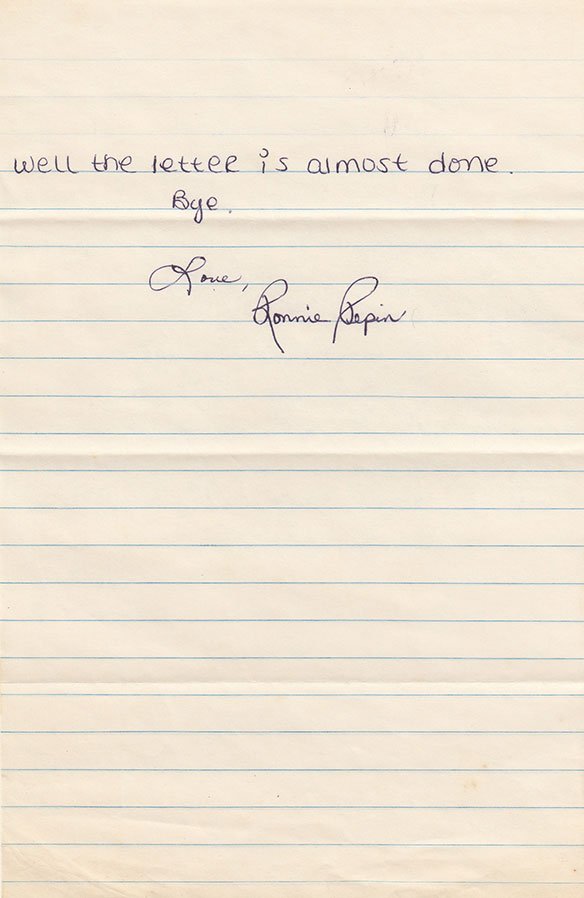 Well the letter is almost done.
Bye.
Love,
Ronnie Pepin